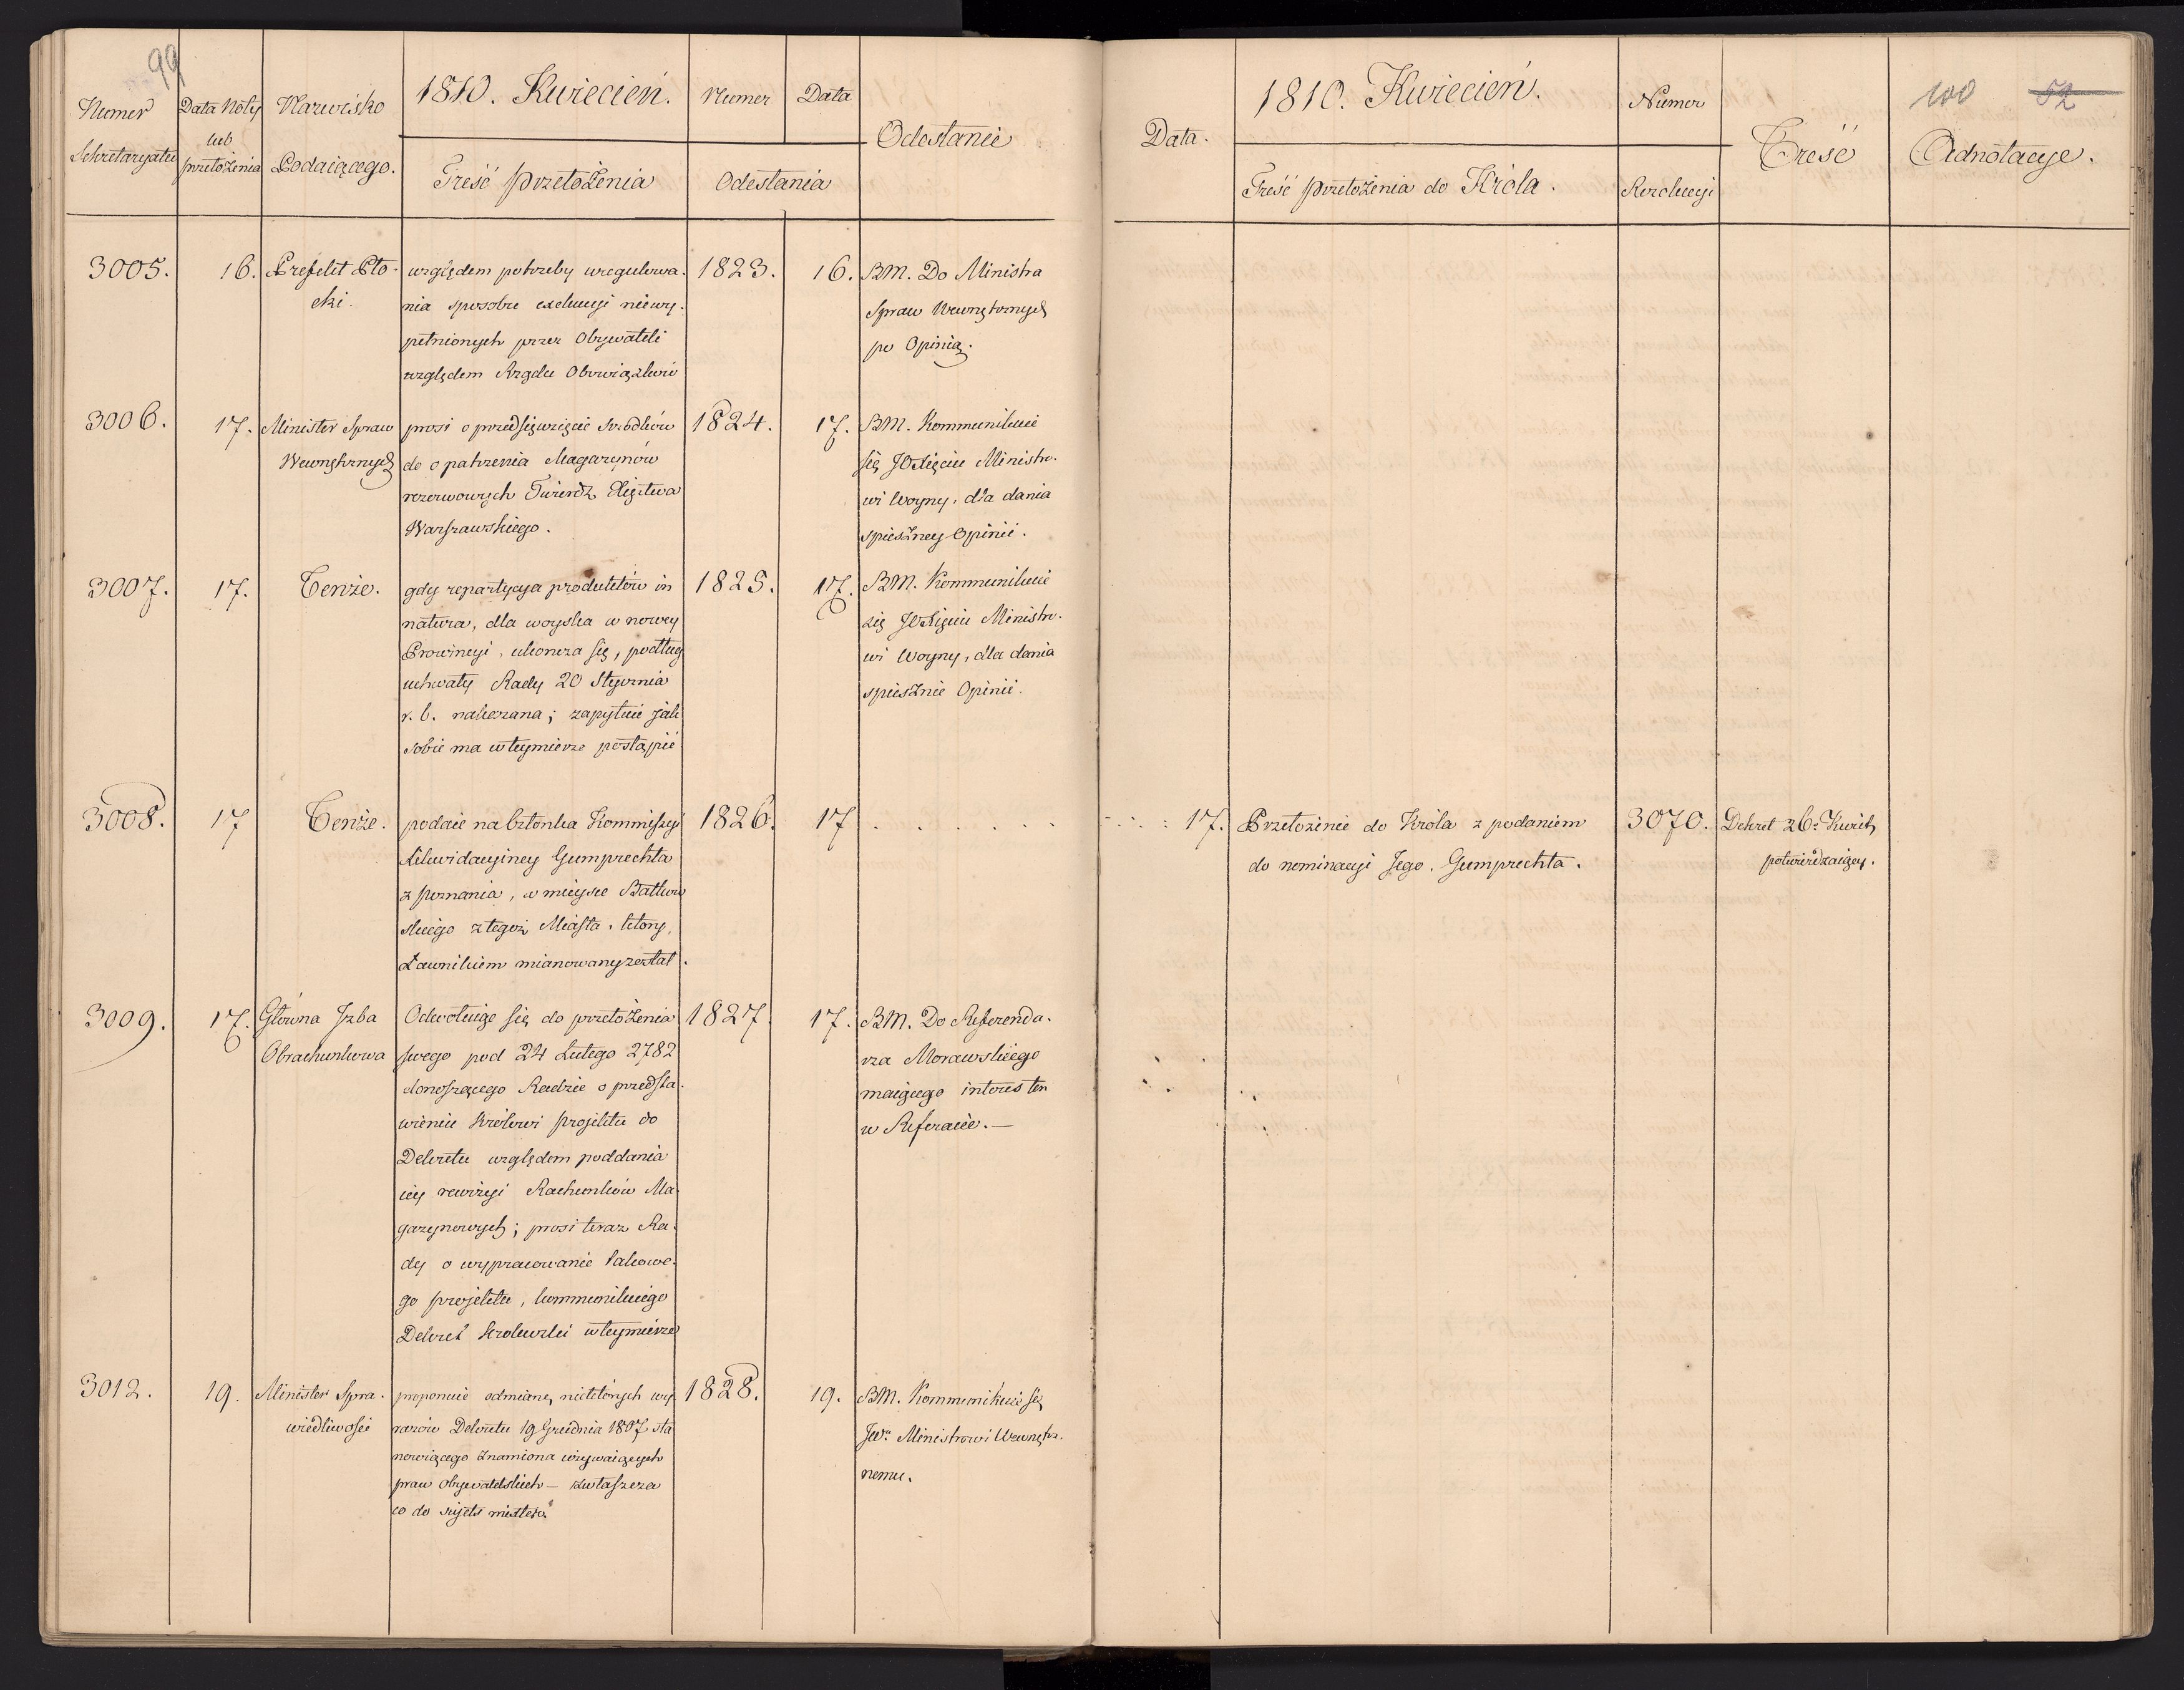 99
Numer
Sekretaryatu
Data Noty
lub
przełożenia
Nazwisko
Podaiącego.
1810. Kwiecień.
Treść przełożenia
Numer
Data
Odesłania
Odesłanie
3005.
16.
Prefekt Pło-
cki.
względem potrzeby uregulowa-
nia sposobu exekucyi niewy-
pełnionych przez Obywateli
względem Rządu Obowiązków
1823.
16.
BM. Do Ministra
Spraw Wewnętrznych
po Opinią.
3006.
17.
Minister Spraw
Wewnętrznych
prosi o przedsięwzięcie srzodków
do opatrzenia Magazynów
rezerwowych Twierdz Xięztwa
Warszawskiego.
1824.
17.
BM. Kommunikuie
się JOXięciu Ministro-
wi Woyny, dla dania
spieszney Opinii.
3007.
17.
Tenże.
gdy repartycya produktów in
natura, dla woyska w nowey
Prowincyi, ukończa się, podług
uchwały Rady 20 Stycznia
r. b. nakazana; zapytuie jak
sobie ma wteymierze postąpić
1825.
17.
BM. Kommunikuie
się JOXięciu Ministro-
wi Woyny, dla dania
spiesznie Opinii.
3008.
17
Tenże.
podaie na Członka Kommissyi
Likwidacyiney Gumprechta
z Poznania, w mieysce
skiego z tegoż Miasta, który,
Ławnikiem mianowany został.
1826.
17
3009.
17.
Główna Izba
Obrachunkowa
Odwołuiąc się do przełożenia
swego pod 24 Lutego 2782
donoszącego Radzie o przedsta-
wieniu Królowi projektu do
Dekretu względem poddania
iey rewizyi Rachunków Ma-
gazynowych; prosi teraz Ra-
dy o wypracowanie takowe-
go projektu, kommunikuiąc
Dekret Królewski wteymierze
1827.
17.
BM. Do Referenda-
rza Morawskiego
maiącego interes ten
w Referacie.—
3012.
19.
Minister Spra-
wiedliwości
proponuie odmianę niektórych wy-
razów Dekretu 19 Grudnia 1807 sta
nowiącego znamiona używaiących
praw Obywatelskich — zwłaszcza
co do
1828.
19.
BM. Kommunikuie się
JW. Ministrowi Wewnętrz-
nemu.
100 52
Data.
1810. Kwiecień.
Treść przełożenia do Króla.
Numer
Rezolucyi
Treść
Adnotacye.
17.
Przełożenie do Króla z podaniem
do nominacyi Jego. Gumprechta.
3070.
Dekret 26. Kwiet,
potwierdzaiący.